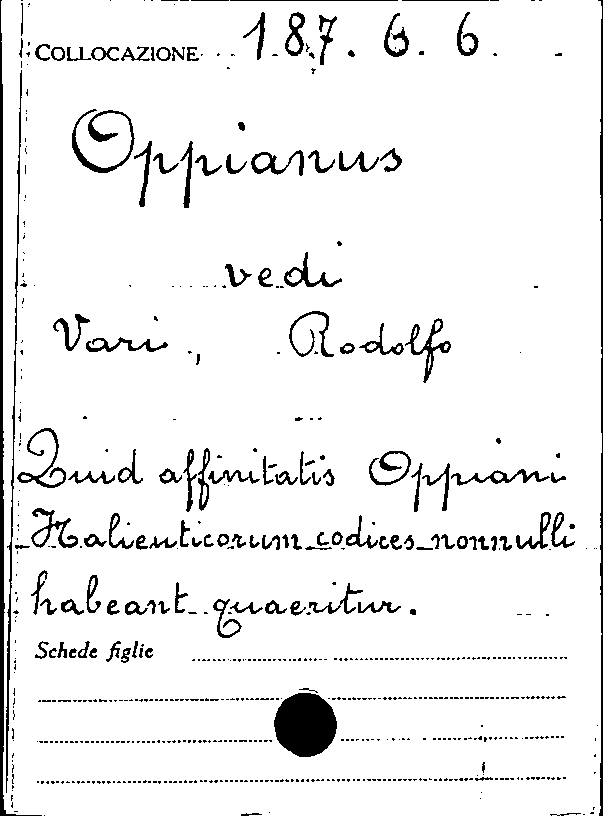 COLLOCAZIONE 187. 6. 6.
Oppianus
vedi
Vari, Rodolfo
Quid affinitatis Oppiani
Halieuticorum codices nonnulli
habeant quaeritur.
Schede figlie